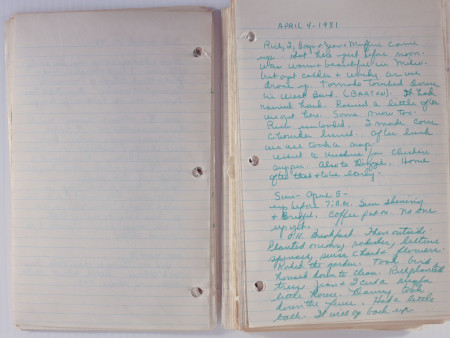 APRIL 4-1981
Rich, 2, Boys + Jean + Muffin came
up. Got here just before noon.
Was warm + beautiful in Milw.
but got colder + windy as we
drove up. Tornado touched down
in West Bend. (BARTON). It had
rained hard. Rained a little after
we got here. Some snow too.
Rich unloaded. I made corn
chowder lunch. After lunch
we all took a nap.
went to for chicken
supper. Also to Home
after that + to be early.
Sun - April 5 -
up before 7:A.M. Sun shining
+ bright. Coffee pot on. No one
up yet.
Breakfast. Then outside.
Planted onions, radishes, lettuce
spinach, swiss chard + flowers.
Raked the garden. Took bird
houses down to clean. Rich planted
trees. Jean + I cut
little house. Danny took
down the fence. Had a little
bath. It all go back up